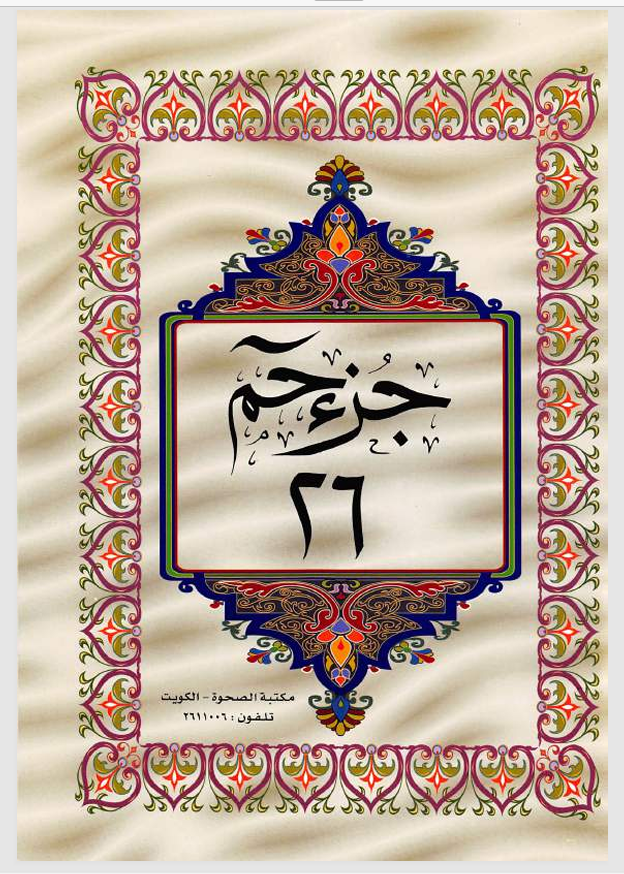 جُزْء حٓم
٢٦
مكتبة الصحوة - الكويت
تلفون : ٢٦١١٠٠٦